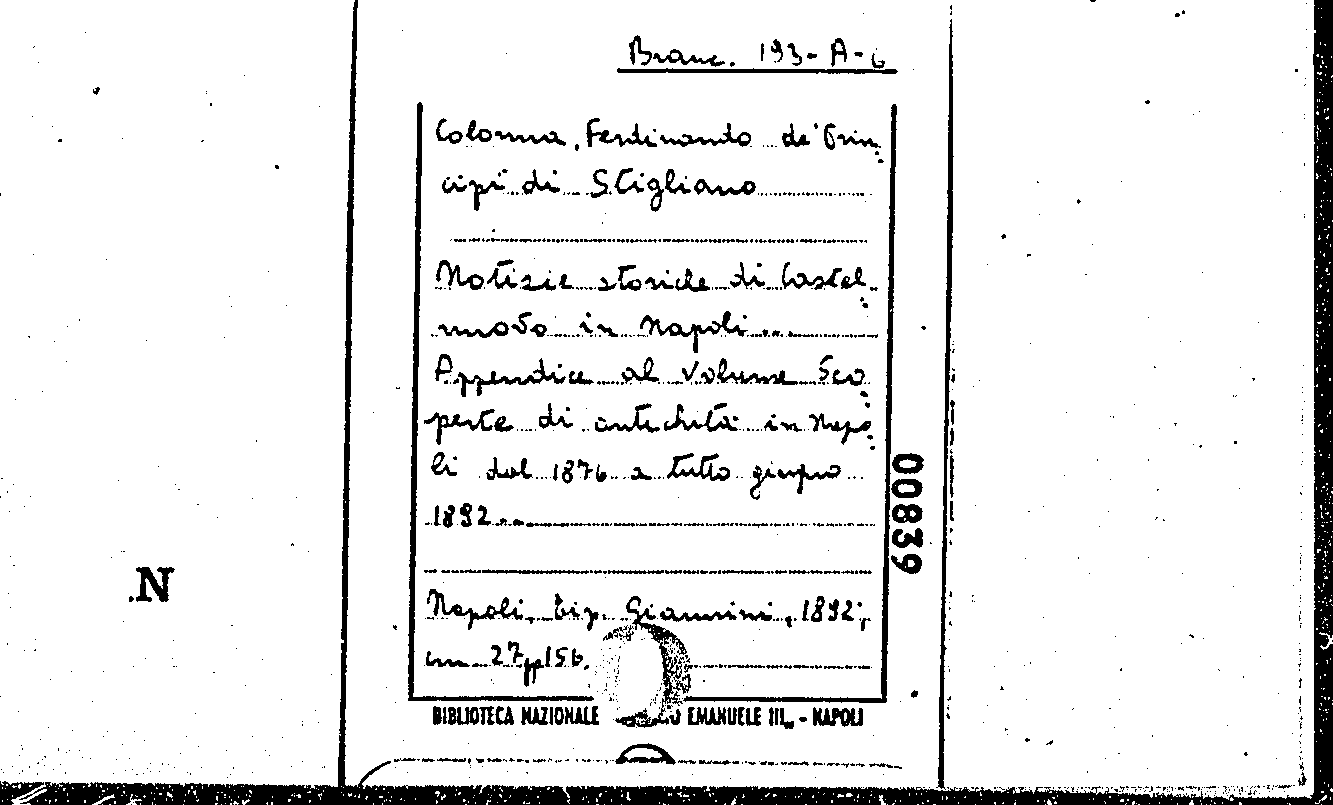 Branc. 193-A-6
Colonna, Ferdinando de' Prin
cipi di Stigliano
Notizie storiche di Castel
nuovo in Napoli...
Appendice al volume Sco
perte di antichità in Napo
li dal 1876 a tutto giugno
1892...
Napoli, tip. Giannini, 1892;
cm. 27 pp 156.
BIBLIOTECA NAZIONALE EMANUELE III,, - NAPOLI
00839
N